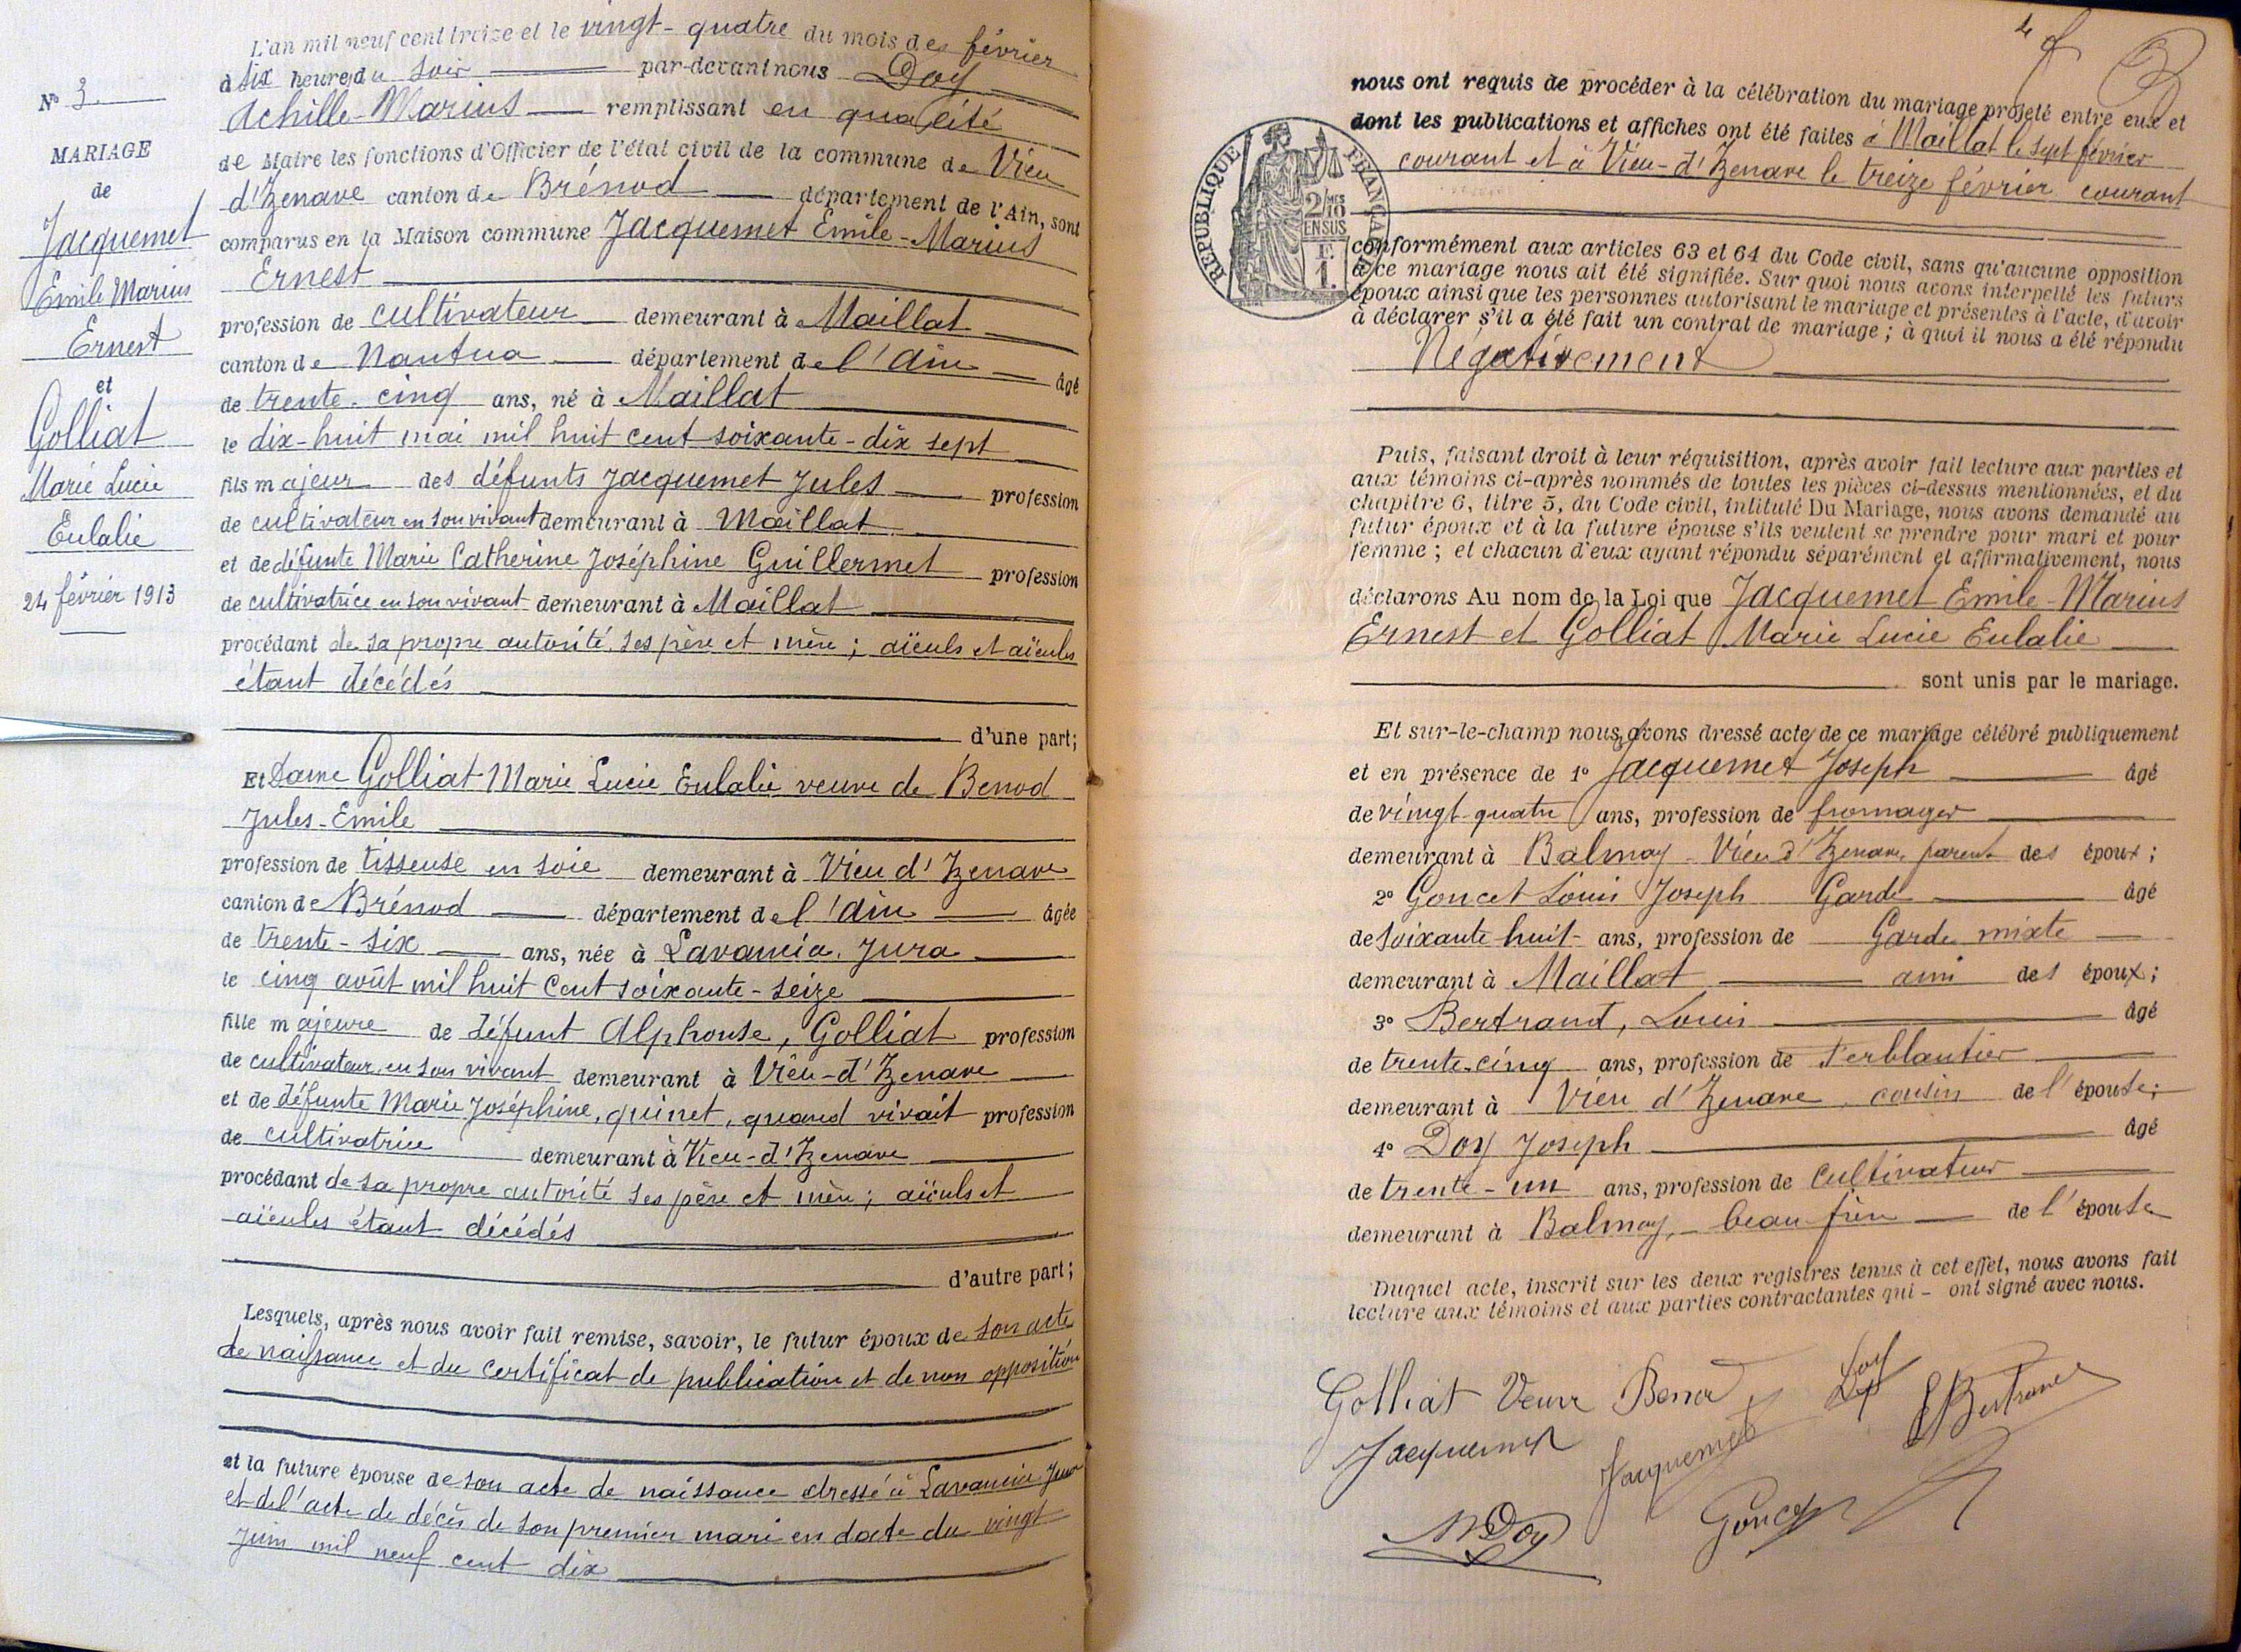 N° 3
MARIAGE
de
Jacquemet
Emile Marius
Ernest
et
Golliat
Marie Lucie
Eulalie
24 février 1913
L'an mil neuf cent treize et le vingt-quatre du mois de février
à six heures du soir par-devant nous Doy
Achille-Marius remplissant en qualité
de Maire les fonctions d'Officier de l'état civil de la commune de Vieu
d'Izenave canton de Brénod département de l'Ain, sont
comparus en la Maison commune Jacquemet Emile-Marius
Ernest
profession de cultivateur demeurant à Maillat
canton de Nantua département de l'Ain âgé
de trente-cinq ans, né à Maillat
le dix-huit mai mil huit cent soixante-dix sept
fils majeur des défunts Jacquemet Jules profession
de cultivateur en son vivant demeurant à Maillat
et de défunte Marie Catherine Joséphine Guillermet profession
de cultivatrice en son vivant demeurant à Maillat
procédant de sa propre autorité, ses père et mère; aïeuls et aïeules
étant décédés
d'une part;
Et Dame Golliat Marie Lucie Eulalie veuve de Benod
Jules-Emile
profession de tisseuse en soie demeurant à Vieu d'Izenave
canton de Brénod département de l'Ain âgée
de trente-six ans, née à Lavancia, Jura
le cinq août mil huit cent soixante-seize
fille majeure de défunt Alphonse, Golliat profession
de cultivateur en son vivant demeurant à Vieu-d'Izenave
et de défunte Marie Joséphine, quinet, quand vivait profession
de cultivatrice demeurant à Vieu-d'Izenave
procédant de sa propre autorité ses père et mère; aïeuls et
aïeules étant décédés
d'autre part;
Lesquels, après nous avoir fait remise, savoir, le futur époux de son acte
de naissance et du certificat de publication et de non opposition
et la future épouse de son acte de naissance dressé à Lavancia Jura
et de l'acte de décès de son premier mari en date du vingt
juin mil neuf cent dix
4
nous ont requis de procéder à la célébration du mariage projeté entre eux et
dont les publications et affiches ont été faites à Maillat le sept février
courant et à Vieu-d'Izenave le treize février courant
RÉPUBLIQUE FRANÇAISE
2/10
EN SUS
F.
1.
conformément aux articles 63 et 64 du Code civil, sans qu'aucune opposition
à ce mariage nous ait été signifiée. Sur quoi nous avons interpellé les futurs
époux ainsi que les personnes autorisant le mariage et présentes à l'acte, d'avoir
à déclarer s'il a été fait un contrat de mariage; à quoi il nous a été répondu
Négativement
Puis, faisant droit à leur réquisition, après avoir fait lecture aux parties et
aux témoins ci-après nommés de toutes les pièces ci-dessus mentionnées, et du
chapitre 6, titre 5, du Code civil, intitulé Du Mariage, nous avons demandé au
futur époux et à la future épouse s'ils veulent se prendre pour mari et pour
femme; et chacun d'eux ayant répondu séparément et affirmativement, nous
déclarons Au nom de la Loi que Jacquemet Emile-Marius
Ernest et Golliat Marie Lucie Eulalie
sont unis par le mariage.
Et sur-le-champ nous avons dressé acte de ce mariage célébré publiquement
et en présence de 1° Jacquemet Joseph âgé
de vingt-quatre ans, profession de fromager
demeurant à Balmay-Vieu d'Izenave, parent des époux;
2° Goncet Louis Joseph Garde âgé
de soixante-huit ans, profession de Garde mixte
demeurant à Maillat ami des époux;
3° Bertrand, Louis âgé
de trente-cinq ans, profession de Ferblantier
demeurant à Vieu d'Izenave, cousin de l'épouse;
4° Doy Joseph âgé
de trente-un ans, profession de cultivateur
demeurant à Balmay, beau-frère de l'épouse
Duquel acte, inscrit sur les deux registres tenus à cet effet, nous avons fait
lecture aux témoins et aux parties contractantes qui ont signé avec nous.
Golliat Veuve Benod Doy Bertrand
Jacquemet Jacquemet
Doy Goncet